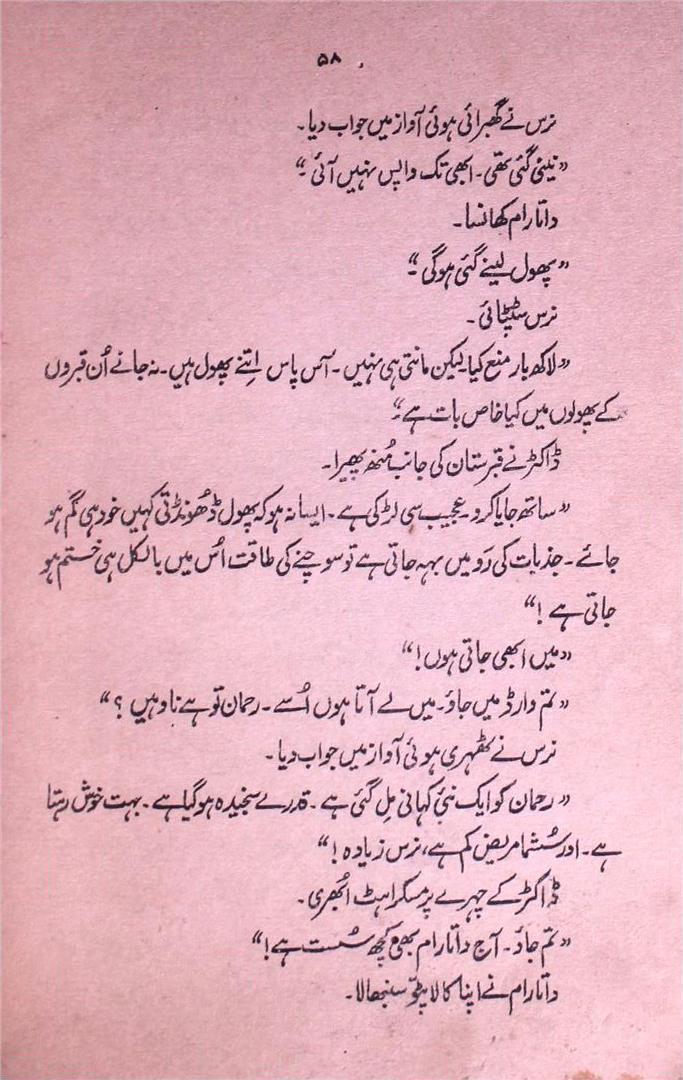 ۵۸
نرس نے گھبرائی ہوئی آواز میں جواب دیا۔
”نینی گئی تھی۔ ابھی تک واپس نہیں آئی۔“
داتا رام کھانسا۔
”پھول لینے گئی ہوگی۔“
نرس سٹپٹائی۔
”لاکھ بار منع کیا۔ لیکن مانتی ہی نہیں۔ آس پاس اتنے پھول ہیں۔ نہ جانے اُن قبروں
کے پھولوں میں کیا خاص بات ہے۔“
ڈاکٹر نے قبرستان کی جانب مُنھ پھیرا۔
”ساتھ جایا کرو۔ عجیب سی لڑکی ہے۔ ایسا نہ ہو کہ پھول ڈھونڈتی کہیں خود ہی گم ہو
جائے۔ جذبات کی رَو میں بہہ جاتی ہے تو سوچنے کی طاقت اُس میں بالکل ہی ختم ہو
جاتی ہے!“
”میں ابھی جاتی ہوں!“
”تم وارڈ میں جاؤ۔ میں لے آتا ہوں اُسے۔ رحمان تو ہے نا وہیں؟“
نرس نے ٹھہری ہوئی آواز میں جواب دیا۔
”رحمان کو ایک نئی کہانی مِل گئی ہے۔ قدرے سنجیدہ ہو گیا ہے۔ بہت خوش رہتا
ہے۔ اور سُشما مریض کم ہے، نرس زیادہ!“
ڈاکٹر کے چہرے پر مسکراہٹ اُبھری۔
”تم جاؤ۔ آج داتا رام بھی کچھ سُست ہے!“
داتا رام نے اپنا کالا پٹّو سنبھالا۔